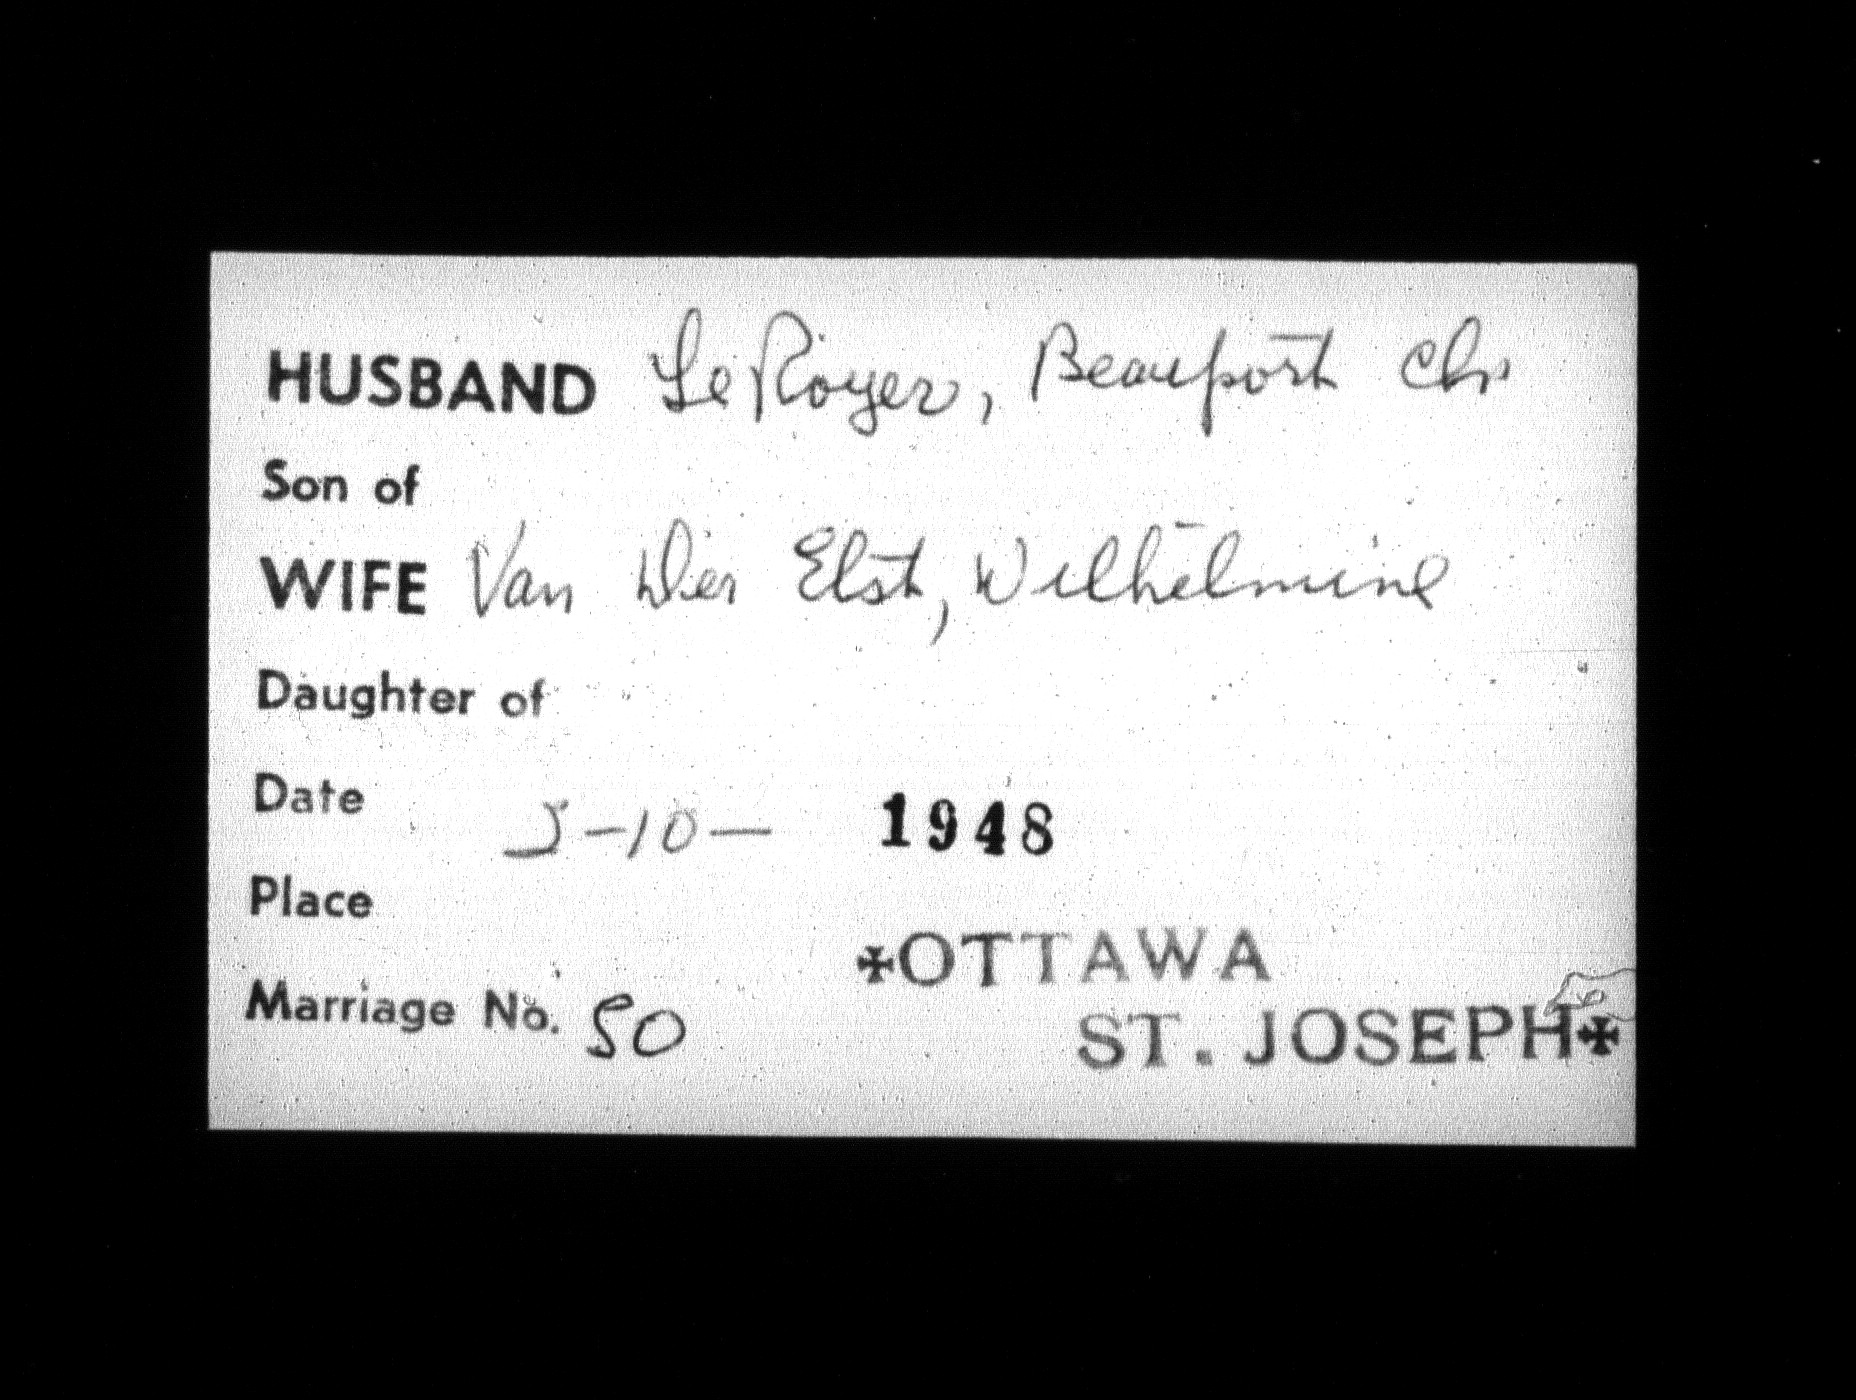 HUSBAND LeRoyer, Beauport Chs
Son of
WIFE Van Der Elst, Wilhelmine
Daughter of
Date 5-10- 1948
Place
✠OTTAWA
Marriage No. 50
ST. JOSEPH✠